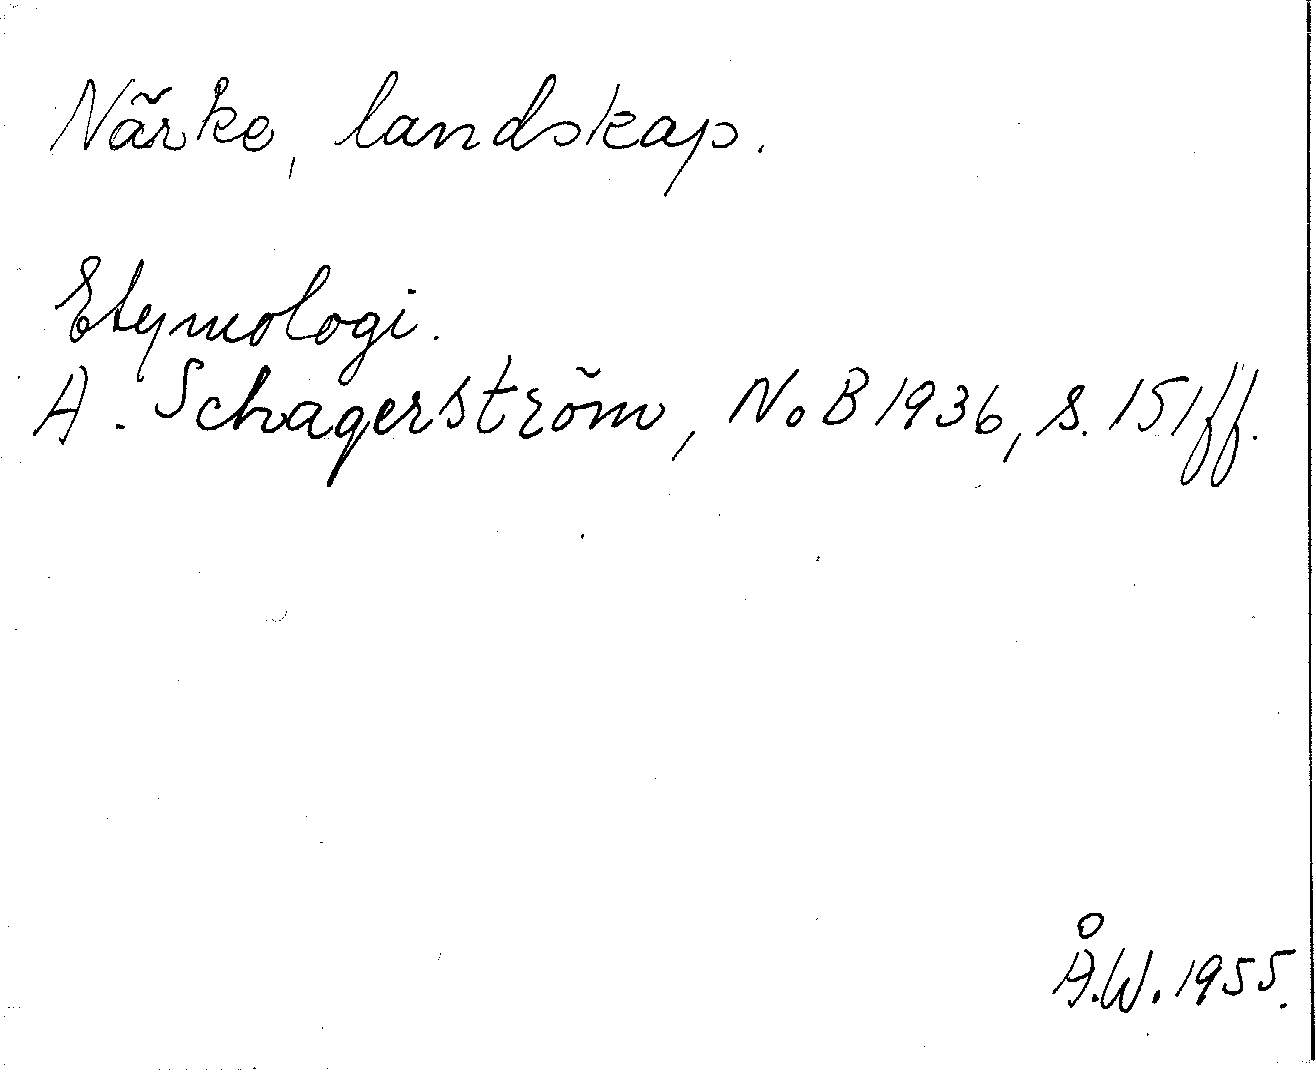 Närke, landskap.
Etymologi.
A. Schagerström, NoB 1936, s. 151 ff.
Å.W. 1955.